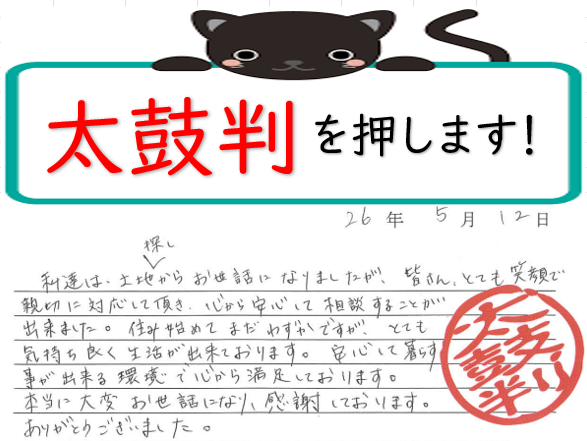 太鼓判を押します!
26年 5月 12日
探し
私達は、土地からお世話になりましたが、皆さん、とても笑顔で
親切に対応して頂き、心から安心して相談することが
出来ました。住み始めてまだわずかですが、とても
気持ち良く生活が出来ております。安心して暮らす
事が出来る環境で心から満足しております。
本当に大変お世話になり、感謝しております。
ありがとうございました。
太鼓判